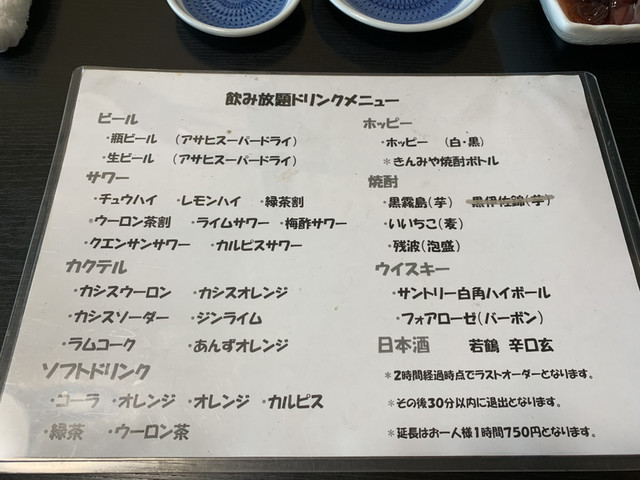 飲み放題ドリンクメニュー
ビール
・瓶ビール （アサヒスーパードライ）
・生ビール （アサヒスーパードライ）
サワー
・チュウハイ ・レモンハイ ・緑茶割
・ウーロン茶割 ・ライムサワー ・梅酢サワー
・クエンサンサワー ・カルピスサワー
カクテル
・カシスウーロン ・カシスオレンジ
・カシスソーダー ・ジンライム
・ラムコーク ・あんずオレンジ
ソフトドリンク
・コーラ ・オレンジ ・オレンジ ・カルピス
・緑茶 ・ウーロン茶
ホッピー
・ホッピー （白・黒）
＊きんみや焼酎ボトル
焼酎
・黒霧島（芋） 黒伊佐錦（芋）
・いいちこ（麦）
・残波（泡盛）
ウイスキー
・サントリー白角ハイボール
・フォアローゼ（バーボン）
日本酒 若鶴 辛口玄
＊2時間経過時点でラストオーダーとなります。
＊その後30分以内に退出となります。
＊延長はお一人様1時間750円となります。